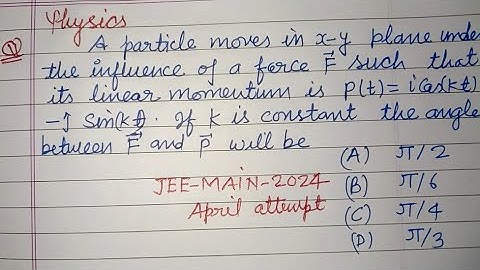 Physics
Q A particle moves in x-y plane under
the influence of a force F⃗ such that
its linear momentum is P(t) = î Cos(kt)
- ĵ Sin(kt). If k is constant the angle
between F⃗ and p⃗ will be
(A) π/2
JEE-MAIN-2024 (B) π/6
April attempt (C) π/4
(D) π/3